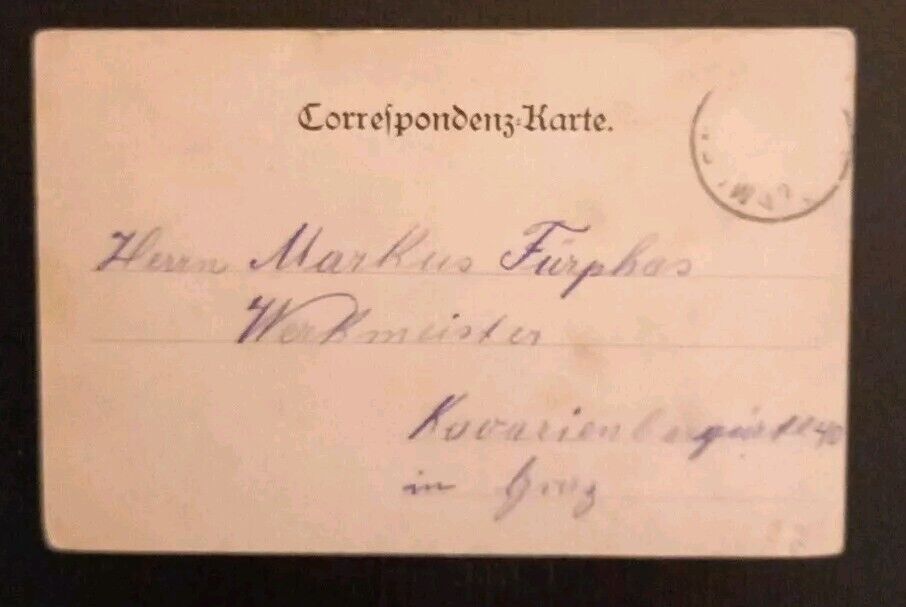 Correspondenz-Karte.
Herrn Markus Fürphas
Werkmeister
40
in Graz